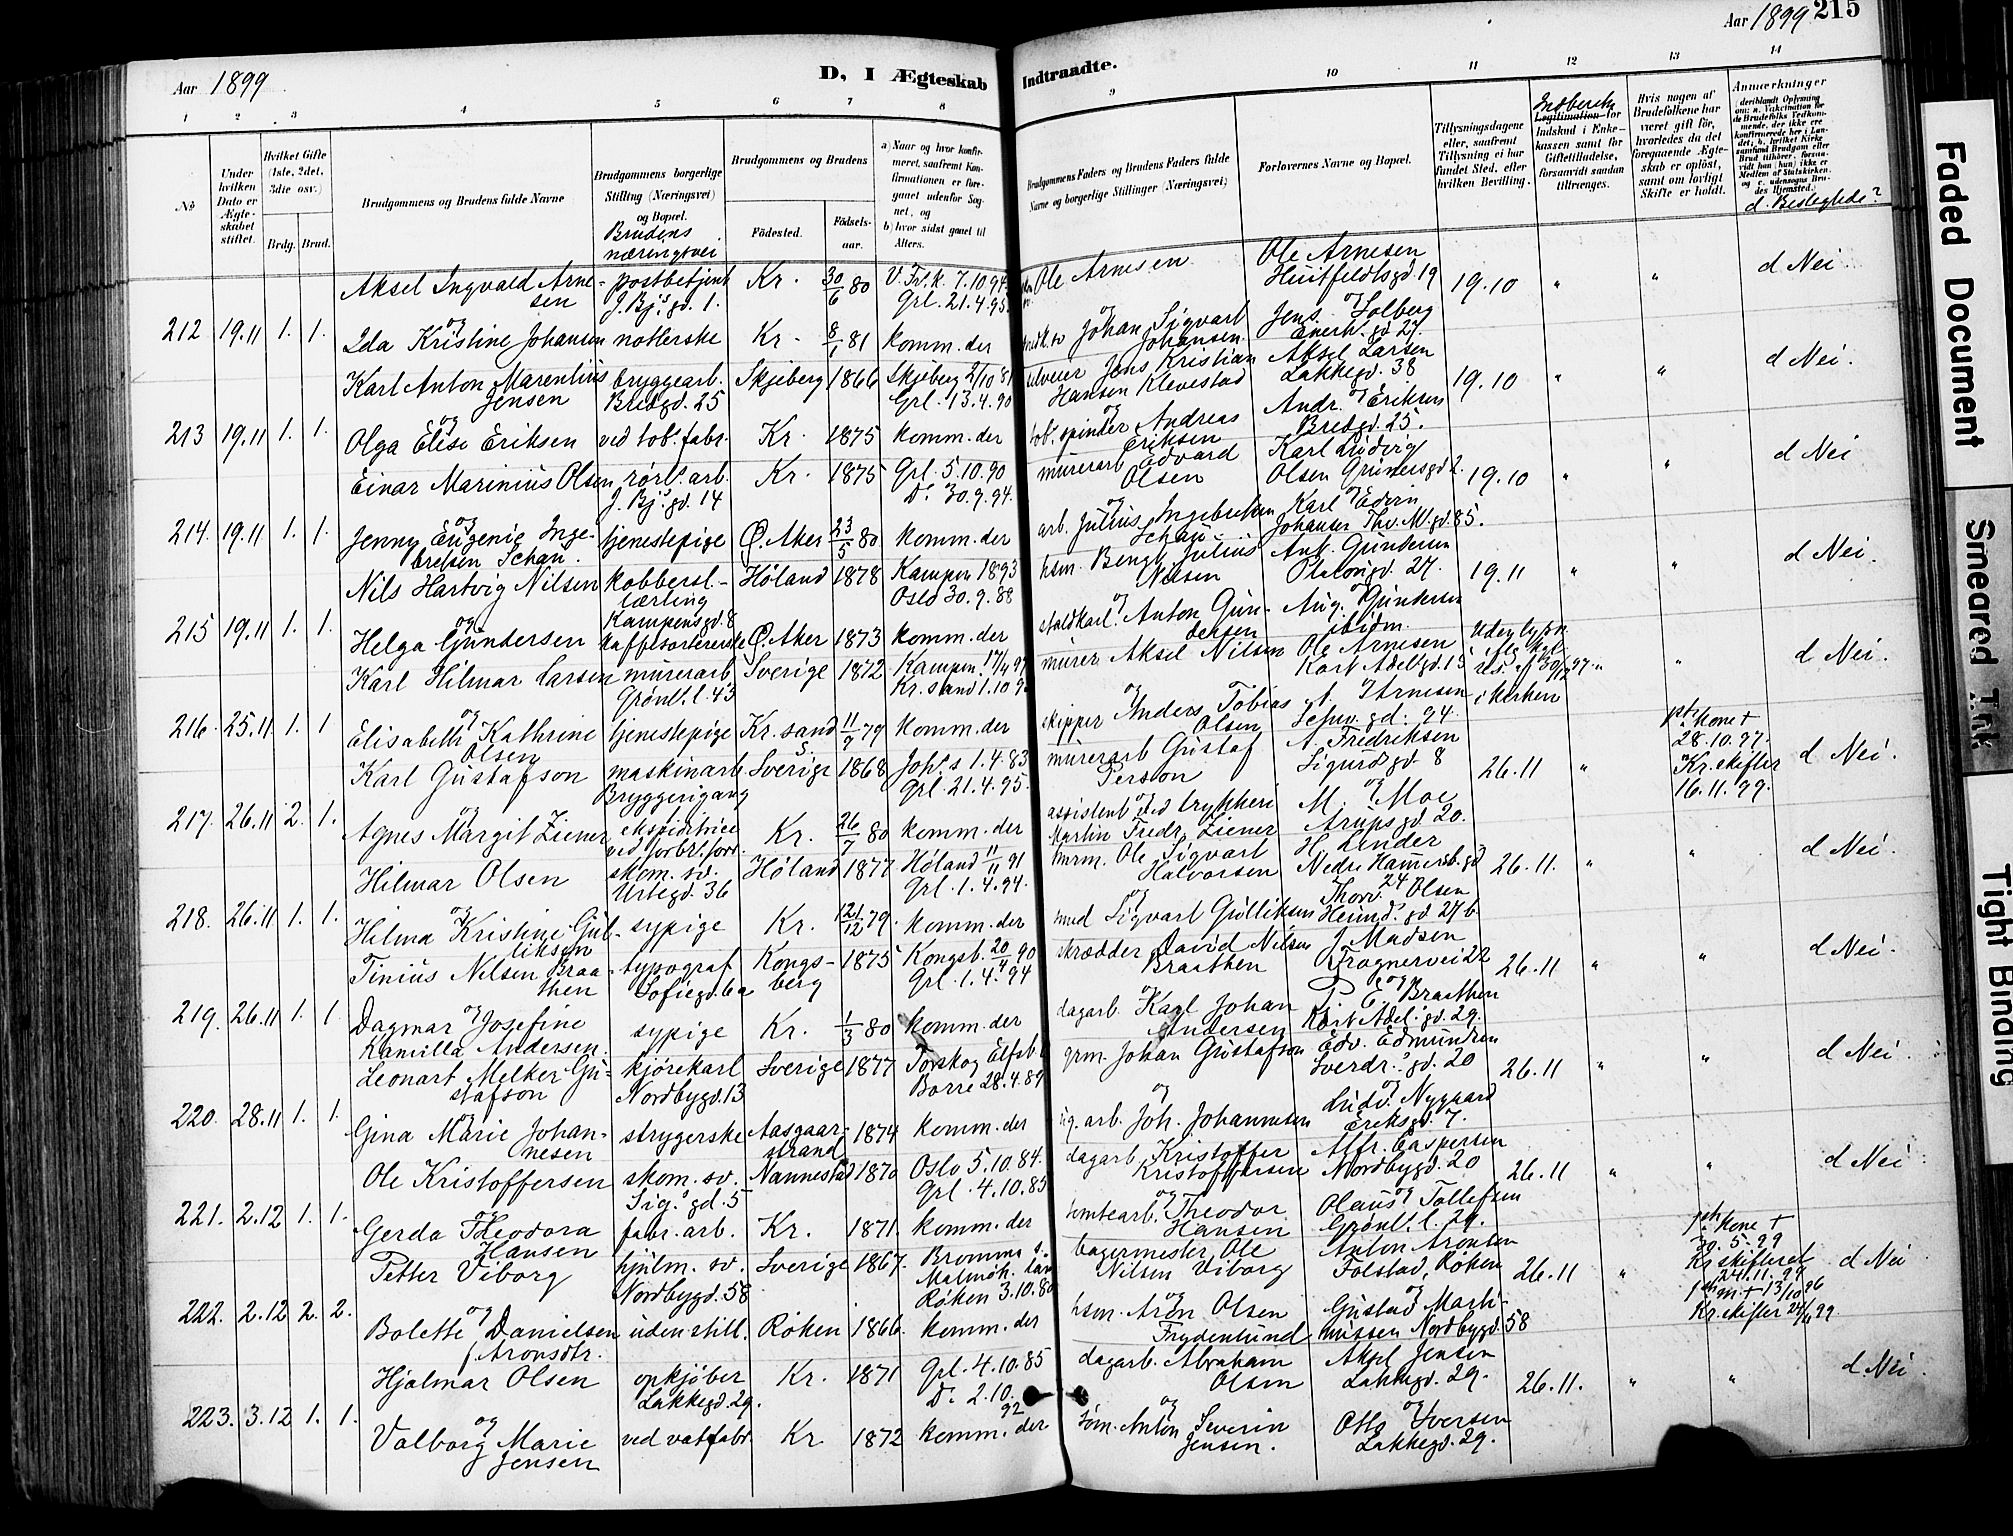 Aar 1899
D, I Ægteskab Indtraadte.
Aar 1899 215
1 2 3 4 5 6 7 8 9 10 11 12 13 14
No
Under hvilken Dato er Ægteskabet stiftet.
Hvilket Gifte (1ste, 2det, 3die osv.)
Brdg. Brud.
Brudgommens og Brudens fulde Navne
Brudgommens borgerlige Stilling (Næringsvei) og Bopæl.
Brudens næringsvei
Brudgommens og Brudens
Fødested.
Fødselsaar.
a) Naar og hvor konfirmeret, saafremt Konfirmationen er foregaaet udenfor Sognet, og
b) hvor sidst gaaet til Alters.
Brudgommens og Brudens Faders fulde Navne og borgerlige Stillinger (Næringsvei)
Forlovernes Navne og Bopæl.
Tillysningsdagene eller, saafremt Tillysning ei har fundet Sted, efter hvilken Bevilling.
Indberetn.
Legitimation for Indskud i Enkekassen samt for Giftetilladelse, forsaavidt saadan tiltrænges.
Hvis nogen af Brudefolkene har været gift før, hvorledes da det foregaaende Ægteskab er opløst, samt om lovligt Skifte er holdt.
Anmærkninger
d. Beslegtede?
Aksel Ingvald Arnesen postbetjent J. Bj.s gd. 1. Kr. 30/6 80 V. Fr. k. 7.10.94 Grl. 21.4.95 Ole Arnesen Ole Arnesen Huitfeldtsgd. 19 19.10 " " d Nei
212 19.11 1. 1. og
Ida Kristine Johansen notterske Kr. 8/1 81 komm. der Johan Sigvart Johansen Jens Solberg gd 27.
Karl Anton Marentius Jensen bryggearb. Bredgd. 25 Skjeberg 1866 Skjeberg 2/10 81 Grl. 13.4.90 Jens Kristian Hansen Klevestad Aksel Larsen Lakkegd. 38 19.10 " " d Nei.
213 19.11 1. 1. og
Olga Elise Eriksen ved tob. fabr. Kr. 1875 komm. der tob. spinder Andreas Eriksen Andr. Eriksen Bredgd. 25.
Einar Marinius Olsen rørl. arb. J. Bj.s gd. 14 Kr. 1875 Grl. 5.10.90 Do 30.9.94. murerarb Edvard Olsen Karl Ludvig Olsen Grünersgd 2. 19.10 " " d Nei
214. 19.11 1. 1. og
Jenny Eugenie Ingebretsen Schau. tjenestepige Ø. Aker 23/5 80 komm. der arb. Julius Ingebretsen Schau Karl Edvin Johansen Thv. M. gd. 85.
Nils Hartvig Nilsen kobbersl. lærling Kampensgd. 8 Høland 1878 Kampen 1893 Oslo 30.9.88 hsm. Bengt Julius Nilsen Ant. Gundersen gd. 27. 19.11 " " d Nei.
215 19.11 1. 1. og
Helga Gundersen kaffesortererske Ø. Aker 1873 komm. der staldkarl. Anton Gundersen Aug. Gundersen ibidm.
Karl Hilmar Larsen murerarb Grønl. l. 43 Sverige 1872 Kampen Kr. sand 1.10 murer Aksel Nilsen Ole Arnesen Kort Adelsgd. 15 Uden lysn. i kirken " " d Nei.
216. 25.11 1. 1 og
Elisabeth Kathrine Olsen tjenestepige Kr. sand S. 11/9 79 komm. der skipper Anders Tobias Olsen A. Arnesen Schw. gd. 94.
Karl Gustafson maskinarb. Bryggerigang Sverige 1868 Joh. s 1.4.83 Grl. 21.4.95. murerarb Gustaf Person A. Fredriksen Sigurdsgd. 8 26.11 " kone + 28.10.97. Kr. skifter 16.11.99. d Nei.
217. 26.11 2. 1. og
Agnes Margit Ziener ekspeditrice ved forbr. for. Kr. 26/7 80 komm. der assistent ved trykkeri Martin Fredr. Ziener M. Moe Arupsgd 20.
Hilmar Olsen skom. sv. Urtegd. 36 Høland 1877 Høland 11/11 91 Grl. 1.4.94. Ole Sigvart Halvorsen H. Linder Nedre Hammersb. gd 24 26.11. " " d Nei.
218. 26.11 1. 1. og
Hilma Kristine Gulliksen sypige Kr. 21/12 79. komm. der smed Sigvart Gulliksen Thorv. Olsen Heimd. gd 27 b.
Tinius Nilsen Braathen typograf Sofiegd. 6a Kongsberg 1875 Kongsb. 20/4 90 Grl. 1.4.94 skrædder David Nilsen Braathen J. Madsen Frognervei 22 26.11 " " d Nei.
219. 26.11 1. 1 og
Dagmar Josefine Kamilla Andersen. sypige Kr. 1/3 80 komm. der dagarb. Karl Johan Andersen P. E. Braathen Kort Adel. gd. 29.
Leonart Melker Gustafson kjørekarl Nordbygd. 13 Sverige 1877 Torskog Elfsb. Borre 28.4.89 grm. Johan Gustafson Edv. Edmundsen Sverdr. gd. 20 26.11 " " d Nei.
220. 28.11 1. 1. og
Gina Marie Johannesen strygerske Aasgaardstrand 1874 komm. der arb. Joh. Johannesen Ludv. Nygaard Eriksgd. 7.
Ole Kristoffersen skom. sv. Sig. gd. 5 Nannestad 1870 Oslo 5.10.84. Grl. 4.10.85 dagarb. Kristoffer Kristoffersen Alfr. Caspersen Nordbygd. 20 26.11 " " d Nei
221. 2.12 1. 1. og
Gerda Theodora Hansen fabr. arb. Kr. 1871. komm. der tomtearb. Theodor Hansen Olaus Tollefsen Grønl. l. 29.
Petter Viborg hjulm. sv. Nordbygd. 58 Sverige 1867. Bromma s. Malmøh. Røken 3.10.80 bagermester Ole Nilsen Viborg Anton Aronsen Folstad, Røken 26.11 " kone + 30.5.99 Kr. skifteret 24.11.99 m + 13/10 96 Kr. skifter 24/11 99. d Nei
222. 2.12 2. 2. og
Bolette Danielsen f. Aronsdtr. uden still. Røken 1866. komm. der hsm. Aron Olsen Frydenlund Gustav Martinussen Nordbygd. 58
Hjalmar Olsen opkjøber Lakkegd. 29. Kr. 1871 Grl. 4.10.85 Do 2.10.92 dagarb. Abraham Olsen Aksel Jensen Lakkegd. 29. 26.11. " " d Nei
223. 3.12 1. 1. og
Valborg Marie Jensen ved vatfabr. Kr. 1872 komm. der Tøm. Anton Severin Jensen. Otto Iversen Lakkegd. 29.
Faded Document
Smeared Ink
Tight Binding